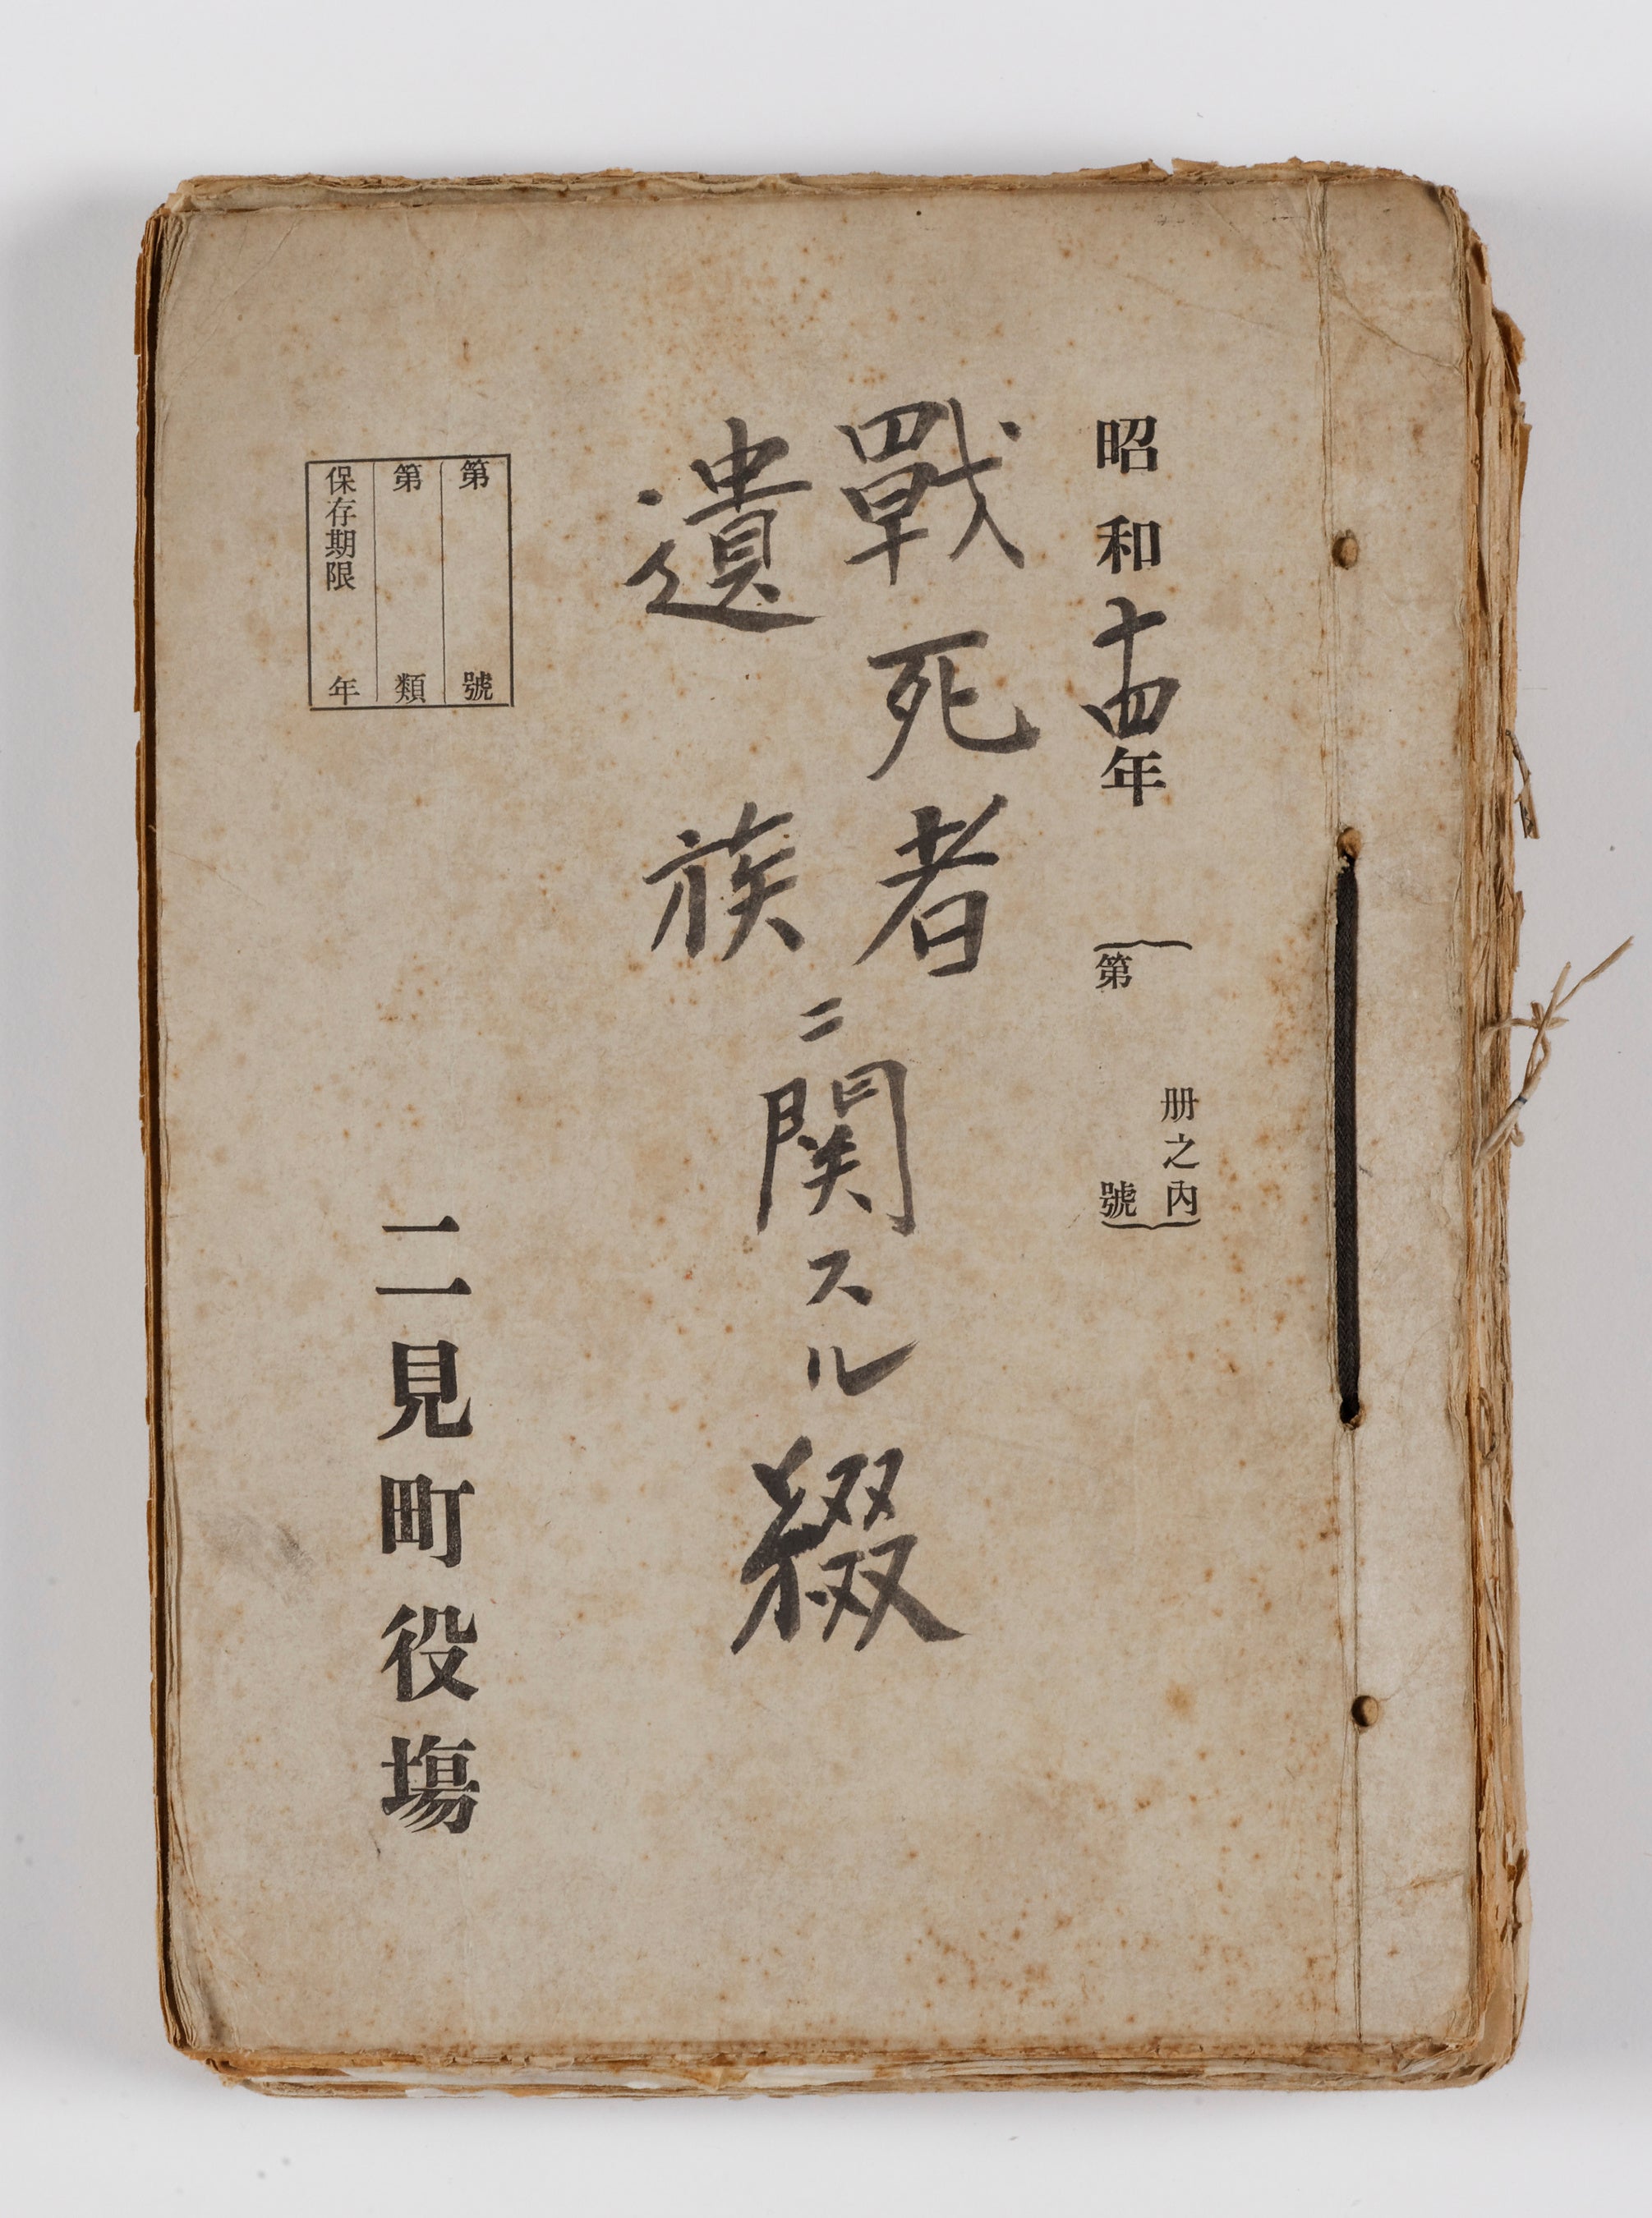 昭和十四年
册之內
第 號
戰死者
遺族
ニ関スル綴
第 號
第 類
保存期限 年
二見町役塲